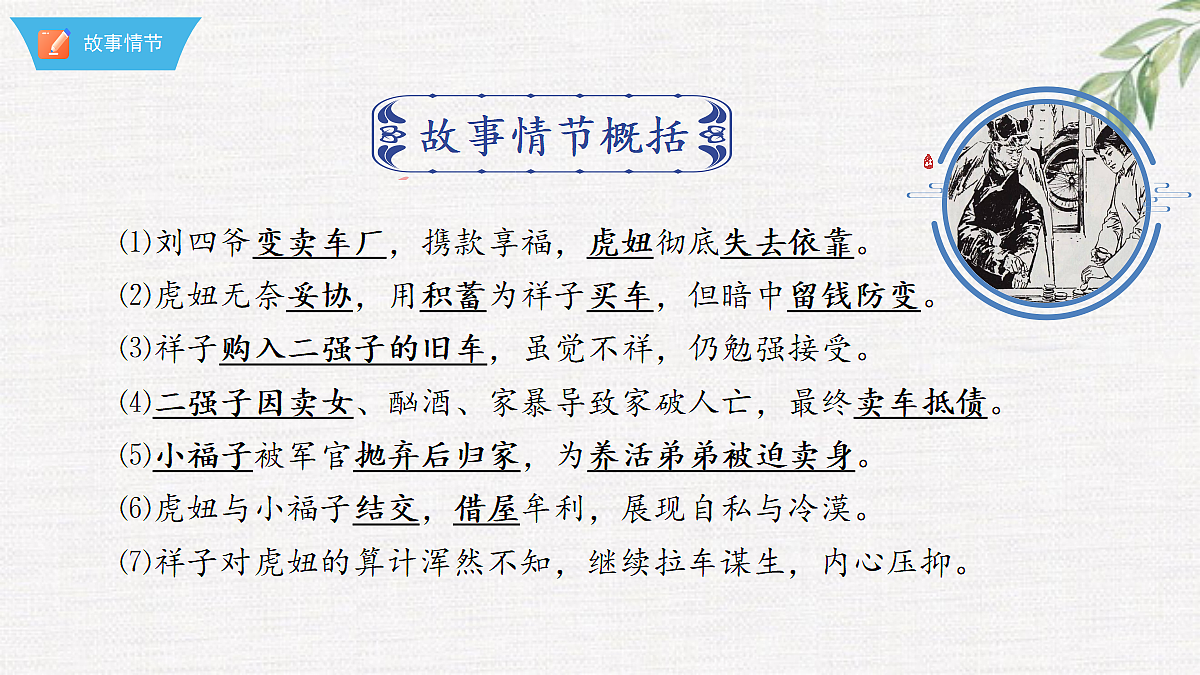 故事情节
故事情节概括
(1)刘四爷变卖车厂，携款享福，虎妞彻底失去依靠。
(2)虎妞无奈妥协，用积蓄为祥子买车，但暗中留钱防变。
(3)祥子购入二强子的旧车，虽觉不祥，仍勉强接受。
(4)二强子因卖女、酗酒、家暴导致家破人亡，最终卖车抵债。
(5)小福子被军官抛弃后归家，为养活弟弟被迫卖身。
(6)虎妞与小福子结交，借屋牟利，展现自私与冷漠。
(7)祥子对虎妞的算计浑然不知，继续拉车谋生，内心压抑。